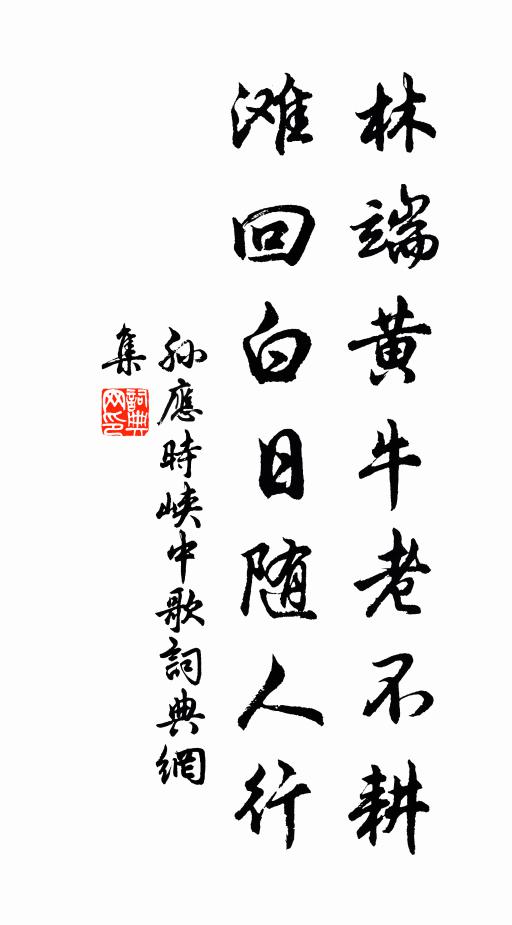 林端黄牛老不耕
滩回白日随人行
孙應時峡中歌詞典網
集
詞典
网印